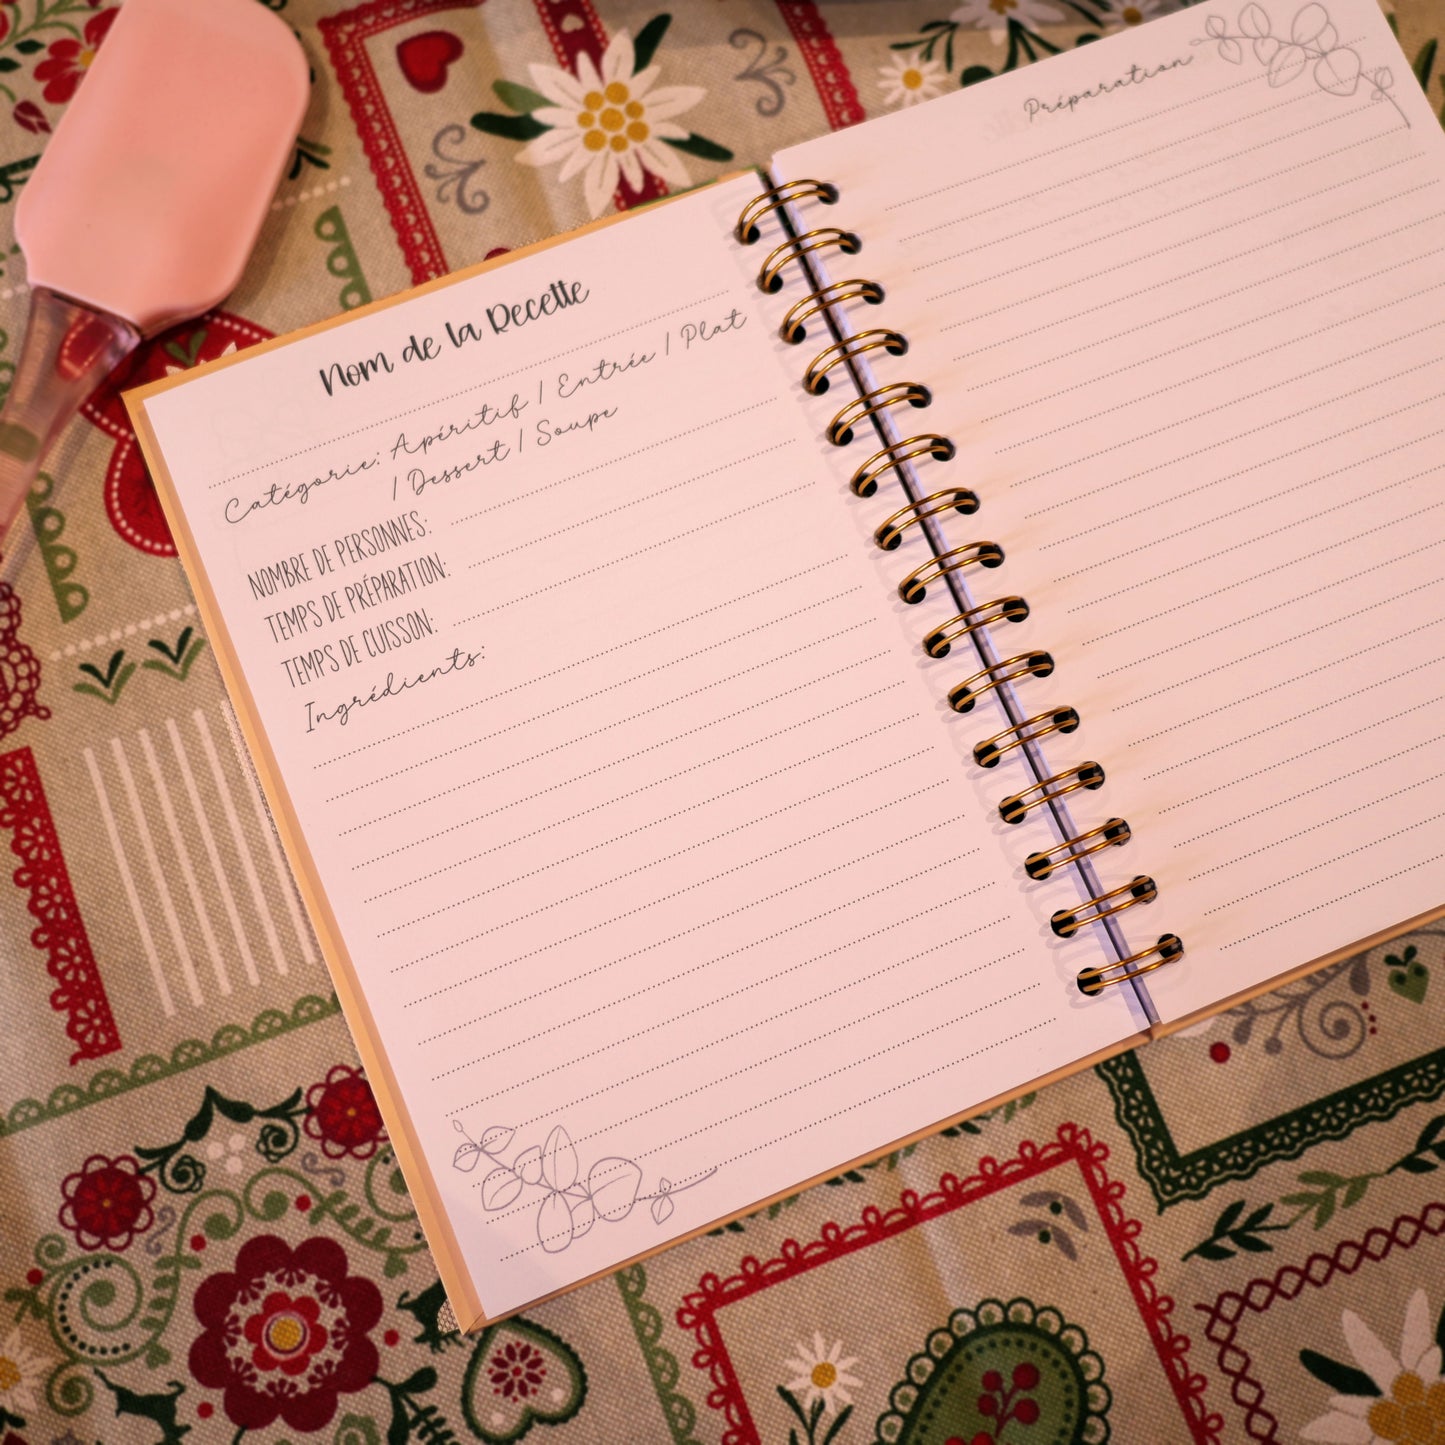 Nom de la Recette
Catégorie: Apéritif / Entrée / Plat
/ Dessert / Soupe
NOMBRE DE PERSONNES:
TEMPS DE PRÉPARATION:
TEMPS DE CUISSON:
Ingrédients:
Préparation